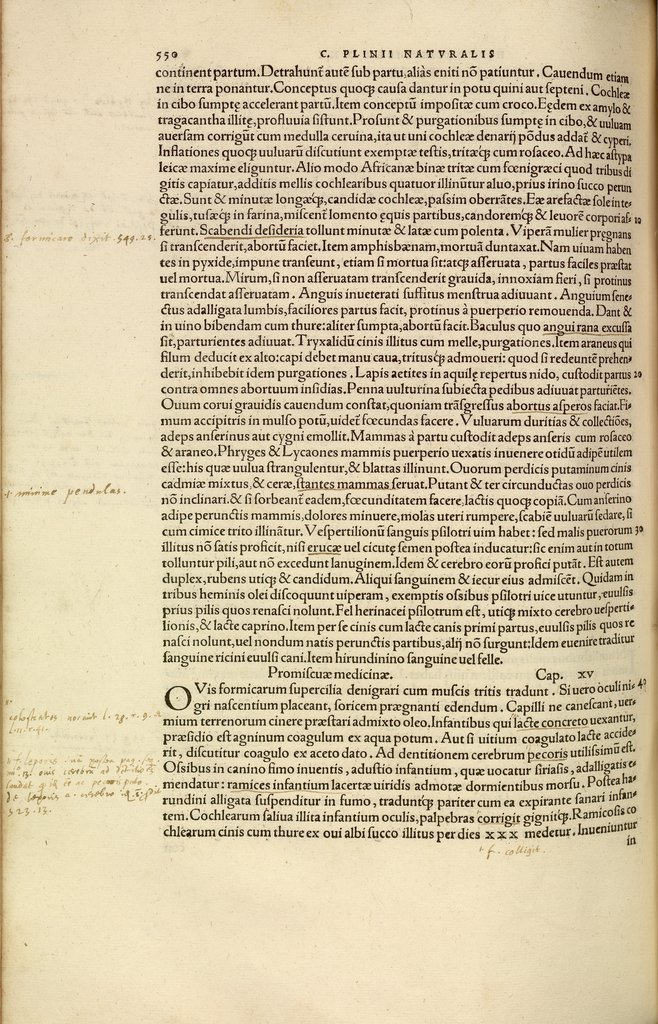 550
C. PLINII NATVRALIS
continent partum.Detrahunt̃ autẽ sub partu,aliàs eniti nõ patiuntur. Cauendum etiam
ne in terra ponantur.Conceptus quoq; causa dantur in potu quini aut septeni. Cochleæ
in cibo sumptę accelerant partũ.Item conceptũ impositæ cum croco.Eędem ex amylo &
tragacantha illitę,profluuia sistunt.Prosunt & purgationibus sumptę in cibo,& uuluam
auersam corrigũt cum medulla ceruina,ita ut uni cochleæ denarij põdus addat̃ & cyperi.
Inflationes quoq; uuluarũ discutiunt exemptæ testis,tritæq; cum rosaceo.Ad hæc astypa
leicæ maxime eliguntur. Alio modo Africanæ binæ tritæ cum fœnigræci quod tribus di
gitis capiatur,additis mellis cochlearibus quatuor illinũtur aluo,prius irino succo perun
ctæ. Sunt & minutæ longæq;,candidæ cochleæ,passim oberrãtes. Eæ arefactæ sole in te-
gulis,tusæq; in farina,miscent̃ lomento ęquis partibus,candoremq; & leuorẽ corporiafs 10
ferunt. Scabendi desideria tollunt minutæ & latæ cum polenta. Viperã mulier pregnans
si transcenderit,abortũ faciet.Item amphisbænam,mortuã duntaxat. Nam uiuam haben
tes in pyxide,impune transeunt, etiam si mortua sit:atq; asseruata , partus faciles præstat
uel mortua. Mirum,si non asseruatam transcenderit grauida, innoxiam fieri, si protinus
transcendat asseruatam . Anguis inueterati suffitus menstrua adiuuant . Anguium sene-
ctus adalligata lumbis,faciliores partus facit, protinus à puerperio remouenda. Dant &
in uino bibendam cum thure:aliter sumpta,abortũ facit. Baculus quo angui rana excussa
sit,parturientes adiuuat. Tryxalidũ cinis illitus cum melle,purgationes. Item araneus qui
filum deducit ex alto:capi debet manu caua,tritusq; admoueri: quod si redeuntẽ prehen-
derit,inhibebit idem purgationes . Lapis aetites in aquilę repertus nido, custodit partus 20
contra omnes abortuum insidias. Penna uulturina subiecta pedibus adiuuat parturiẽtes.
Ouum corui grauidis cauendum constat,quoniam trãsgressus abortus asperos faciat. Fi-
mum accipitris in mulso potũ,uidet̃ fœcundas facere . Vuluarum duritias & collectiões,
adeps anserinus aut cygni emollit. Mammas à partu custodit adeps anseris cum rosaceo
& araneo. Phryges & Lycaones mammis puerperio uexatis inuenere otidũ adipẽ utilem
esse:his quæ uulua strangulentur, & blattas illinunt. Ouorum perdicis putaminum cinis
cadmiæ mixtus,& ceræ, stantes mammas seruat. Putant & ter circunductas ouo perdicis
nõ inclinari.& si sorbeant̃ eadem,fœcunditatem facere,lactis quoq; copiã. Cum anserino
adipe perunctis mammis,dolores minuere,molas uteri rumpere,scabiẽ uuluarũ sedare, si
cum cimice trito illinãtur. Vespertilionũ sanguis psilotri uim habet : sed malis puerorum 30
illitus nõ satis proficit, nisi erucæ uel cicutę semen postea inducatur:sic enim aut in totum
tolluntur pili,aut nõ excedunt lanuginem. Idem & cerebro eorũ profici putãt. Est autem
duplex,rubens utiq; & candidum. Aliqui sanguinem & iecur eius admiscẽt. Quidam in
tribus heminis olei discoquunt uiperam , exemptis ossibus psilotri uice utuntur,euulsis
prius pilis quos renasci nolunt. Fel herinacei psilotrum est , utiq; mixto cerebro uesperti-
lionis,& lacte caprino. Item per se cinis cum lacte canis primi partus,euulsis pilis quos re
nasci nolunt,uel nondum natis perunctis partibus,alij nõ surgunt:Idem euenire traditur
sanguine ricini euulsi cani. Item hirundinino sanguine uel felle.
Promiscuæ medicinæ. Cap. xv
OVis formicarum supercilia denigrari cum muscis tritis tradunt . Si uero oculi ni- 40
gri nascentium placeant, soricem prægnanti edendum . Capilli ne canescant, uer-
mium terrenorum cinere præstari admixto oleo. Infantibus qui lacte concreto uexantur,
præsidio est agninum coagulum ex aqua potum . Aut si uitium coagulato lacte accide-
rit, discutitur coagulo ex aceto dato . Ad dentitionem cerebrum pecoris utilissimũ est.
Ossibus in canino fimo inuentis , adustio infantium , quæ uocatur siriasis, adalligatis e-
mendatur : ramices infantium lacertæ uiridis admotæ dormientibus morsu. Postea ha-
rundini alligata suspenditur in fumo , traduntq; pariter cum ea expirante sanari infan-
tem. Cochlearum saliua illita infantium oculis,palpebras corrigit gignitq;. Ramicosis co
chlearum cinis cum thure ex oui albi succo illitus per dies xxx medetur. Inueniuntur
in
formicare dixit . 549. 25.
minime pendulas.
f. colligit.